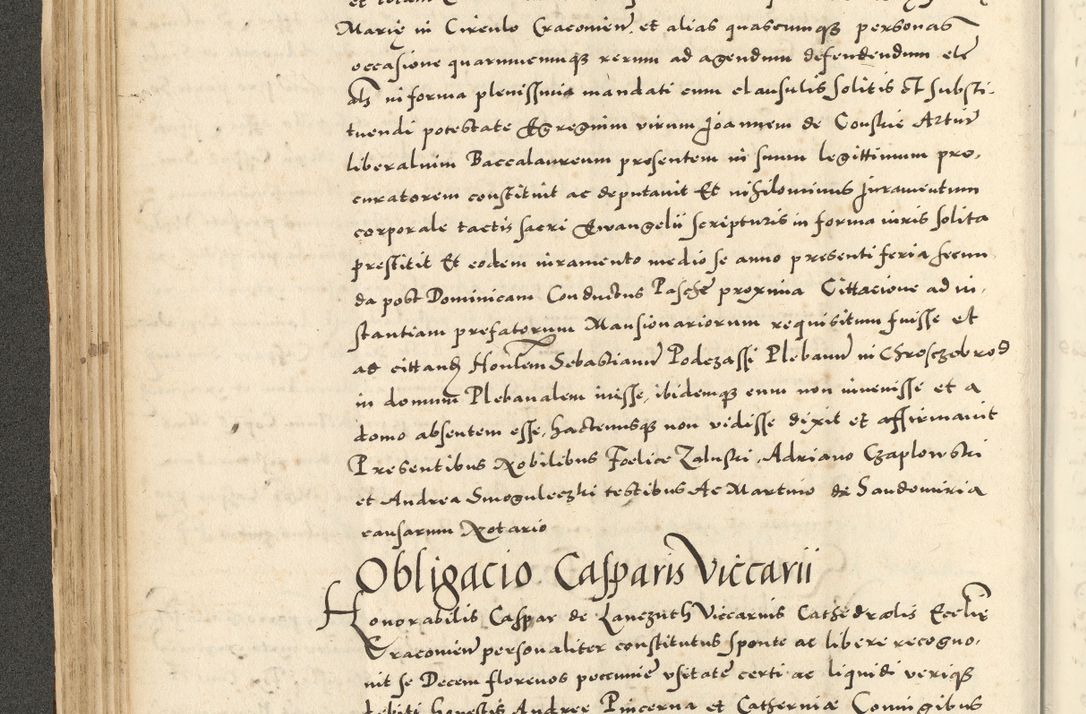 Marię in Circulo Cracovien̄ et alias quascumqꝫ personas
occasione quarumcumqꝫ rerum ad agendum defendendum
als in forma plenissima mandati cum clausulis solitis Et substi-
tuendi potestate Egregium virum Joannem de Artiū
liberalium Baccalaureum presentem in suum legittimum pro-
curatorem constituit ac deputavit Et nihilominus Juramentum
corporale tactis sacri Ewangelii scripturis in forma iuris solita
prestitit Et eodem iuramento medio se anno presenti feria secun
da post Dominicam Conductus Paschę proxima Cittacione ad in-
stantiam prefatorum Mansionariorum requisitum fuisse et
ad cittand Honlem Sebastianū Podczassi Plebanū in Chroszczebrod
in domum Plebanalem ivisse, ibidemqꝫ eum non invenisse et a
domo absentem esse, hactenusqꝫ non vidisse dixit et affirmavit
Presentibus Nobilibus Foelice Zaluski, Adriano Czaplowski
et Andrea Smoguleczki testibus Ac Martino de Sandomiria
causarum Notario
Obligacio Casparis Viccarii
Honorabilis Caspar de Lanczuth Viccarius Cathedralis Ecclię
Cracovien̄ personaliter constitutus sponte ac libere recogno-
vit se Decem florenos peccunię usitatę certi ac liquidi veriqꝫ
debiti honestis Andree Pincerna et Catherinę Coniugibus